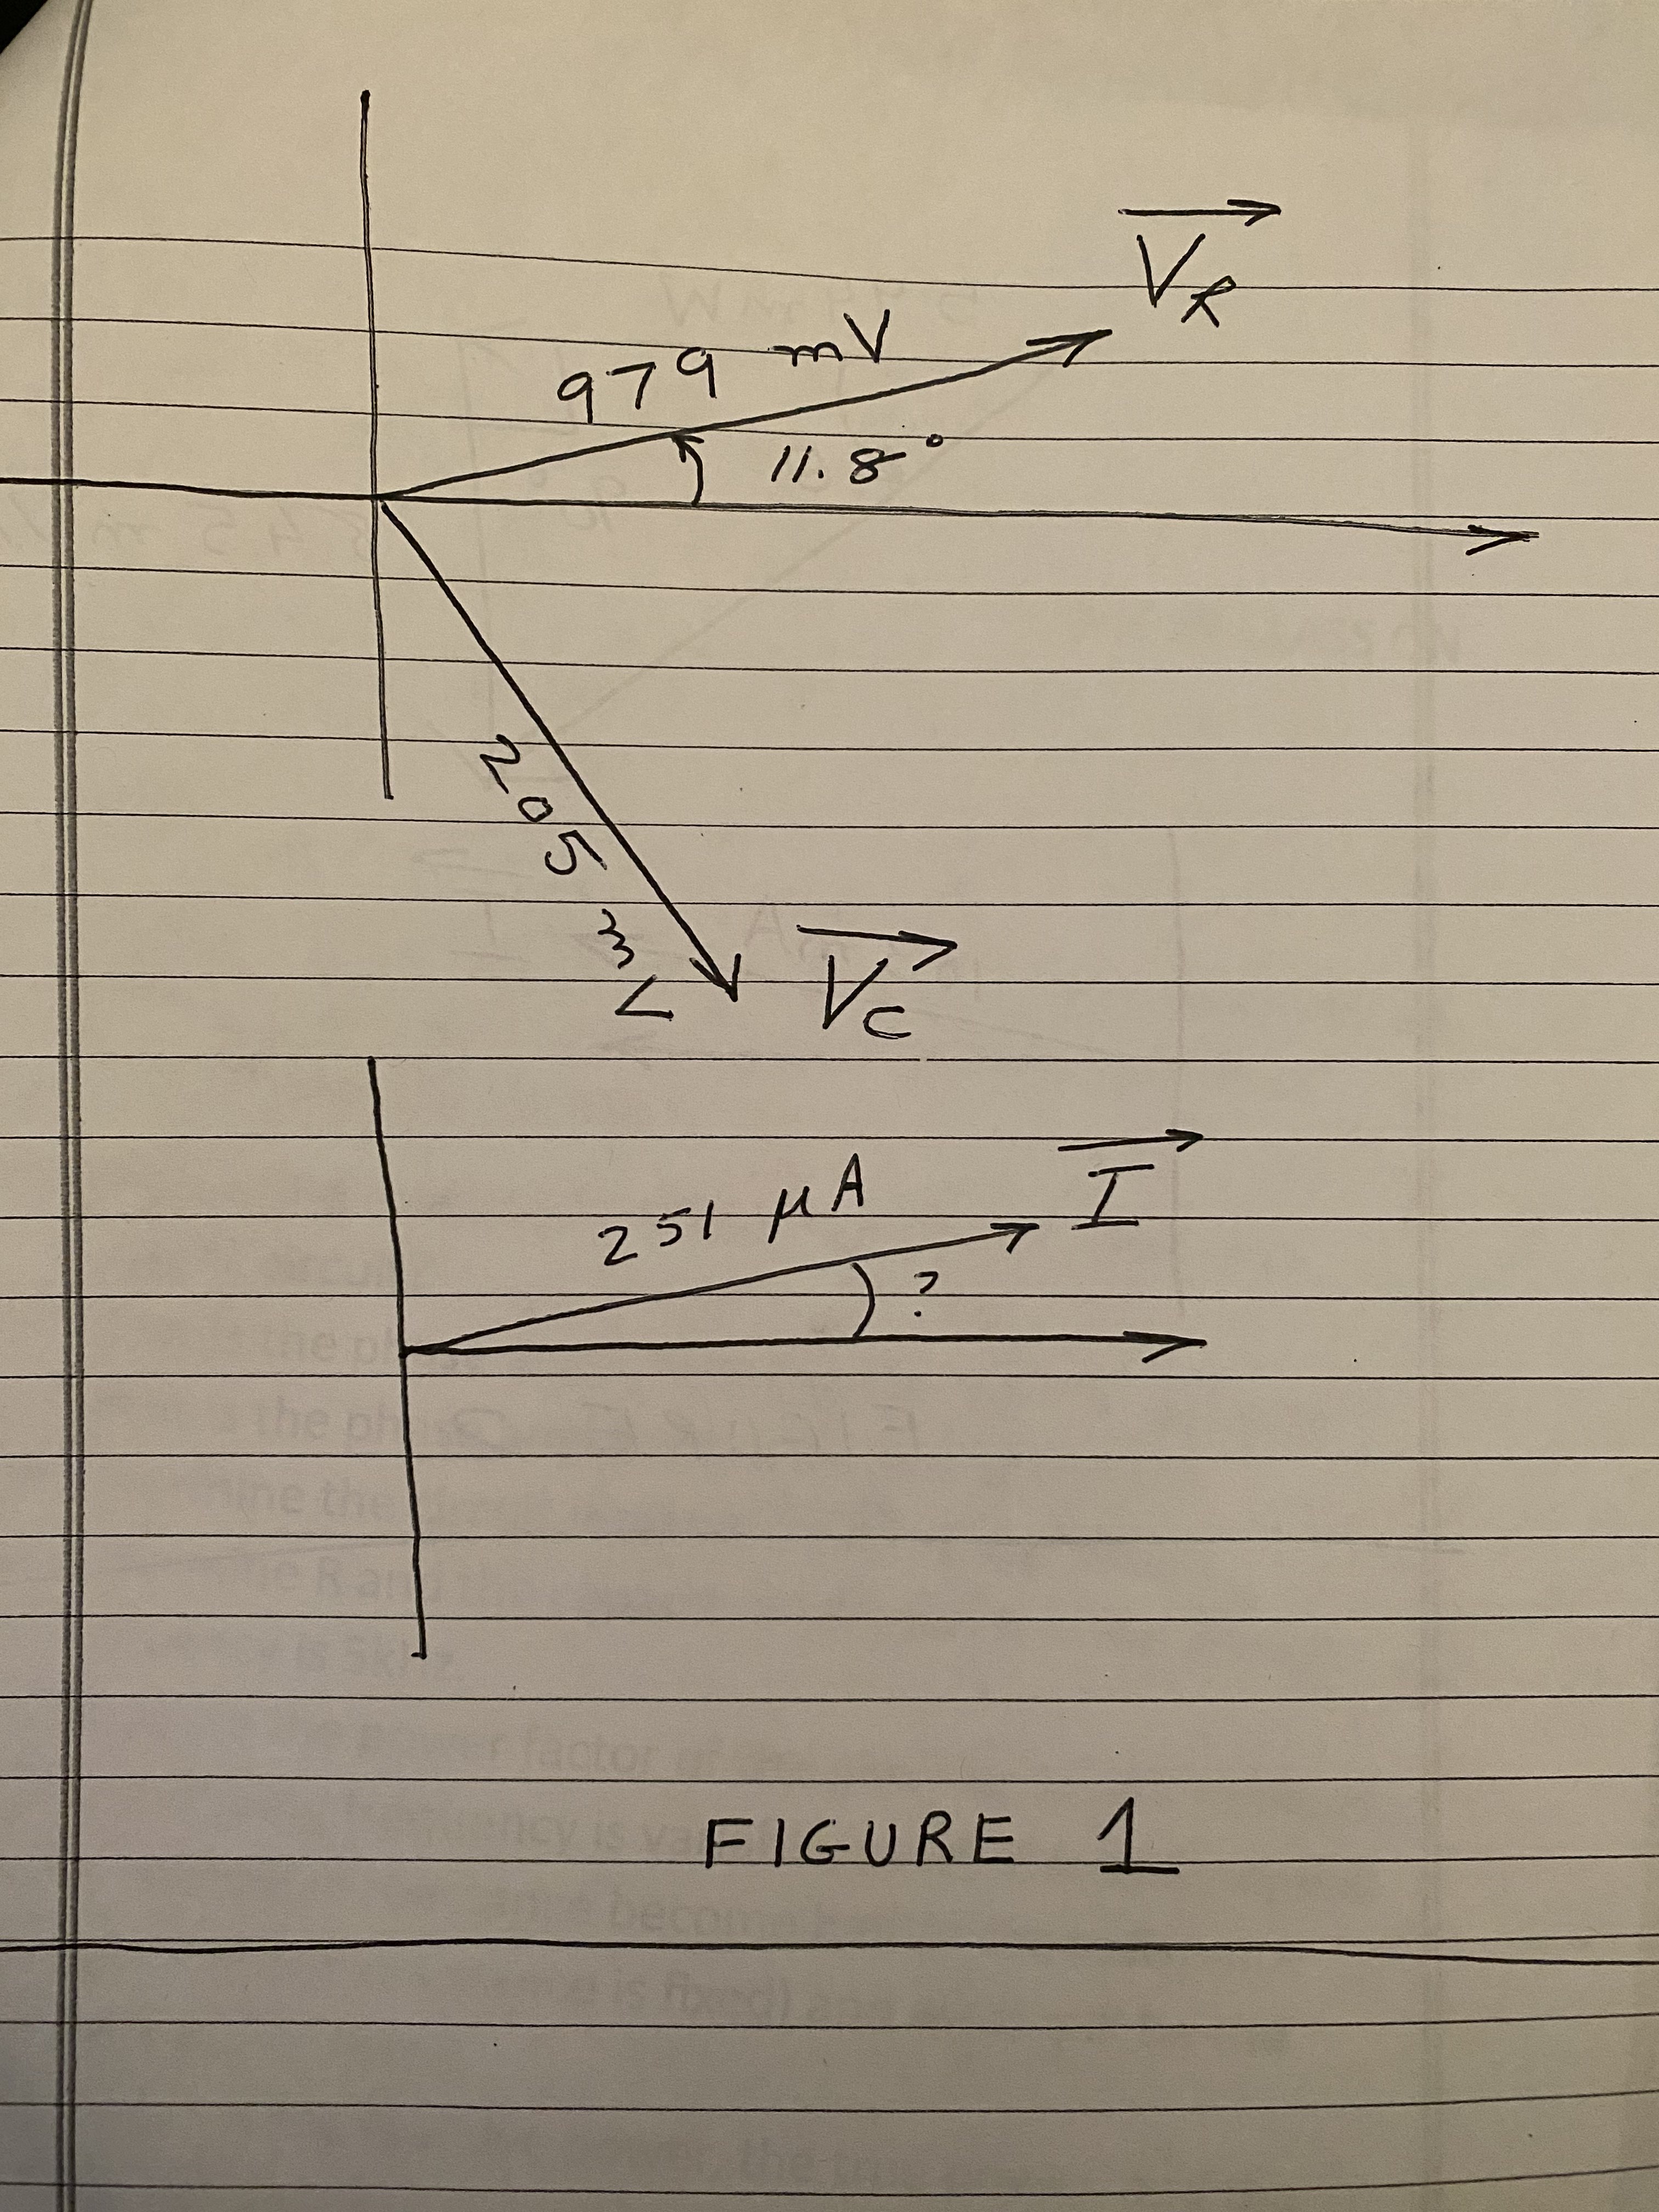 V_R
979 mV
11.8°
205 mV
V_C
I
251 μA
?
FIGURE 1